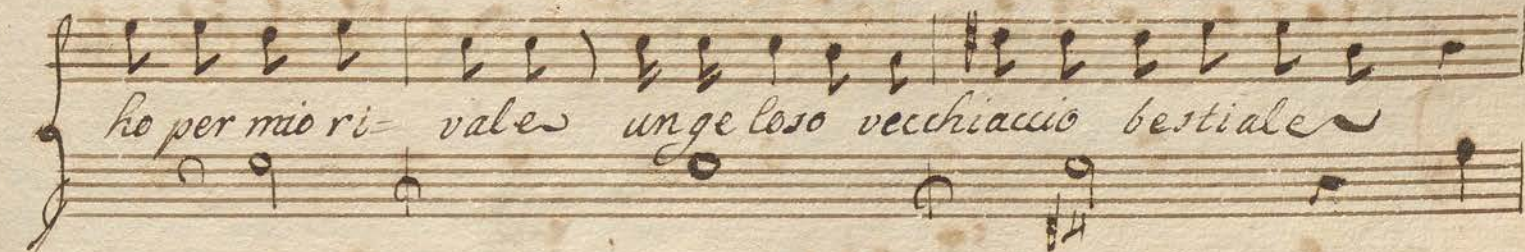 ho per mio ri= vale un geloso vecchiaccio bestiale
♯4